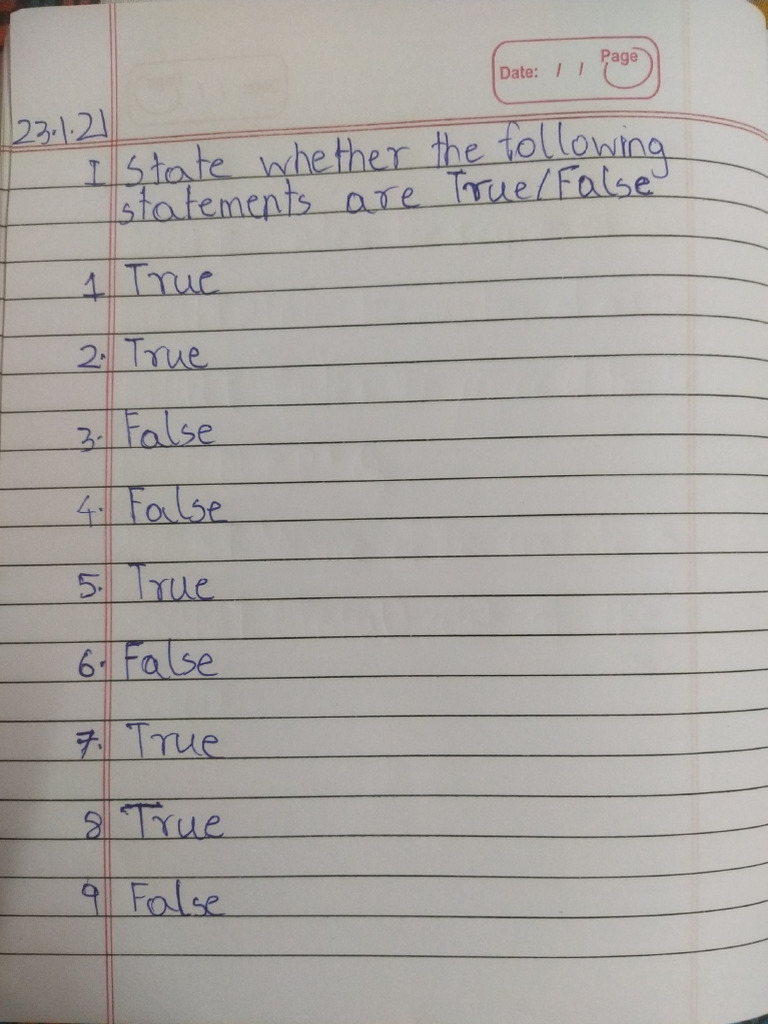 Date: / / Page
23.1.21
I State whether the following
statements are True/False
1 True
2. True
3. False
4. False
5. True
6. False
7. True
8 True
9 False